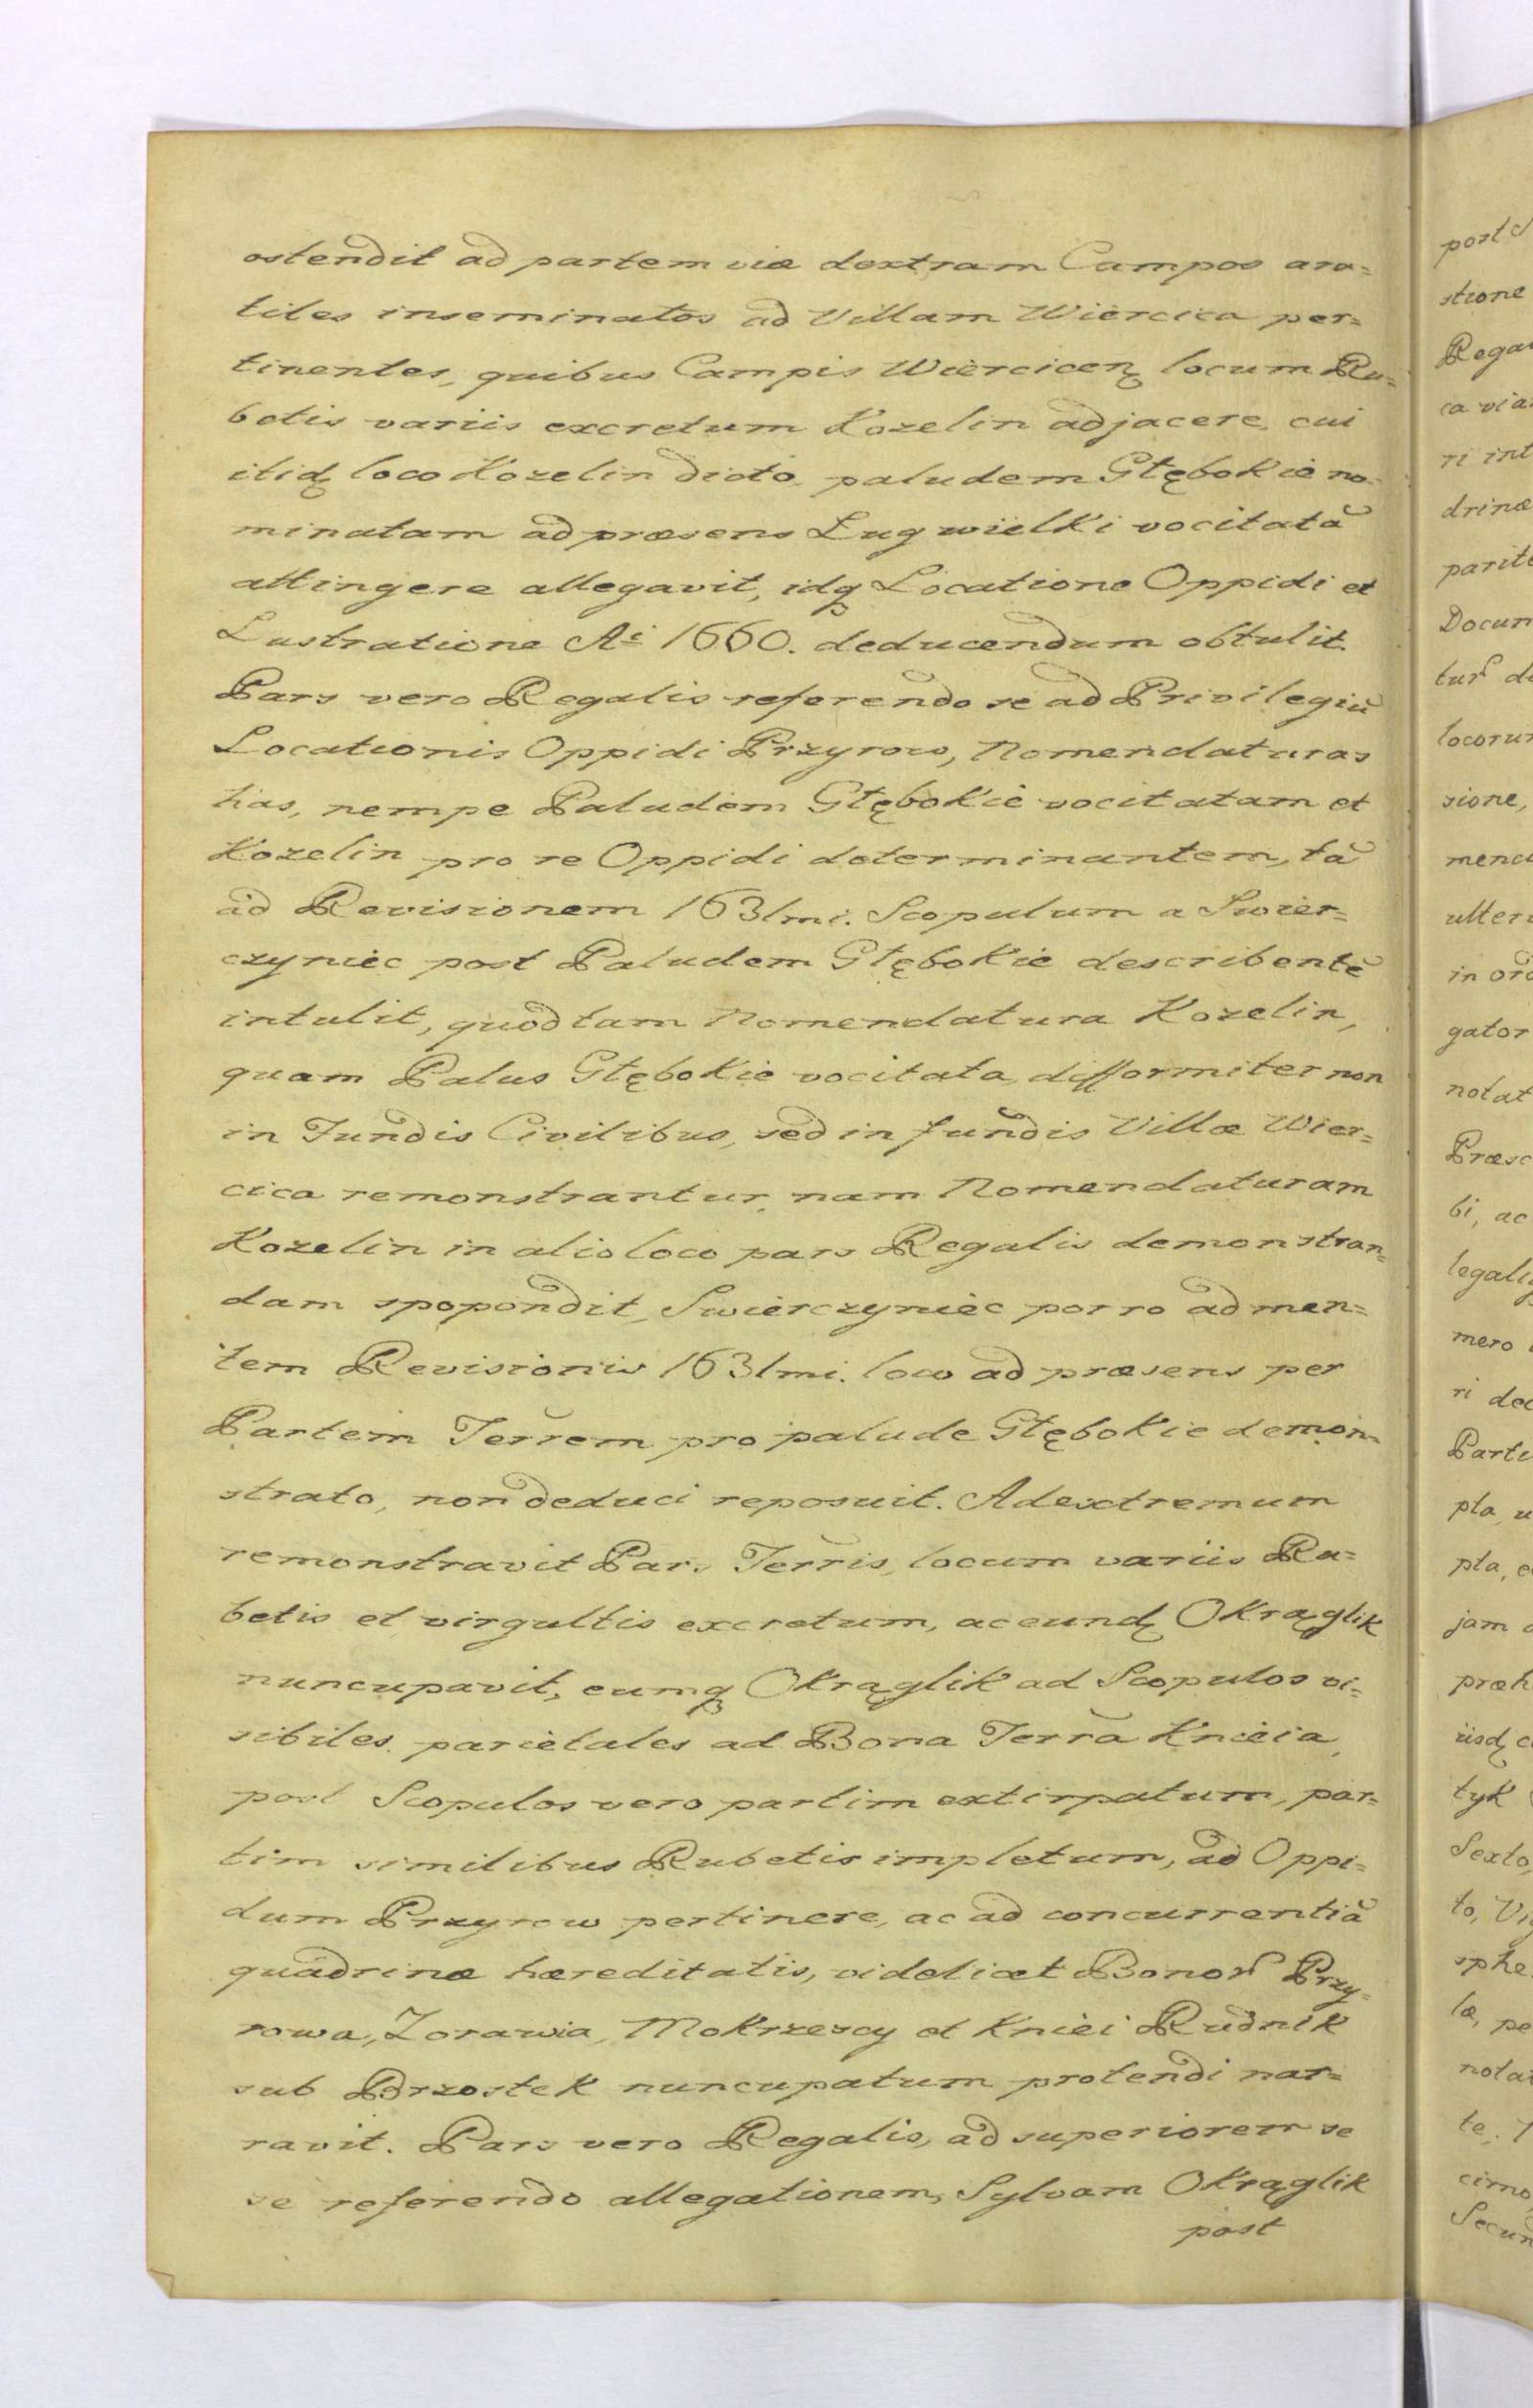 ostendit ad partem viæ dextram Campos ara=
tiles inseminatos ad Villam Wiercica per=
tinentes, quibus Campis Wiercicen locum Ru=
betis variis excretum Kozelin adjacere, cui
itidq loco Kozelin dicto, paludem Głębokie no=
minatam ad præsens Ług wielki vocitatã
attingere allegavit, idq Locatione Oppidi et
Lustratione Ai 1660. deducendum obtulit.
Pars vero Regalis referendo se ad Privilegiũ
Locationis Oppidi Przyrow, Nomendaturas
has, nempe Paludem Głębokie vocitatam et
Kozelin pro re Oppidi determinantem, tã
ad Revisionem 1631mi. Scopulum a Swier=
czyniec post Paludem Głębokie describentẽ
intulit, quod tam Nomendatura Kozelin,
quam Palus Głębokie vocitata, difformiter non
in Fundis Civilibus, sed in fundis Villæ Wier=
cica remonstrantur, nam Nomendaturam
Kozelin in alio loco pars Regalis demonstran=
dam spopondit, Swierczyniec porro ad men=
tem Revisionis 1631mi. loco ad præsens per
Partem Terrem pro palude Głębokie demon=
strato, non deduci reposuit. Ad extremum
remonstravit Pars Terris, locum variis Ru=
betis et virgultis excretum, ac eundq Okrąglik
nuncupavit, eumq Okrąglik ad Scopulos vi=
sibiles parietales ad Bona Terrã Knieia,
post Scopulos vero partim extirpatum, par=
tim similibus Rubetis impletum, ad Oppi=
dum Przyrow pertinere, ac ad concurrentiã
quadrinæ hæreditatis, videlicet Bonor Przy=
rowa, Zorawia, Mokrzeszy et Kniei Rudnik
sub Brzostek nuncupatum protendi nar=
ravit. Pars vero Regalis, ad superiorem se
se referendo allegationem, Sylvam Okrąglik
post